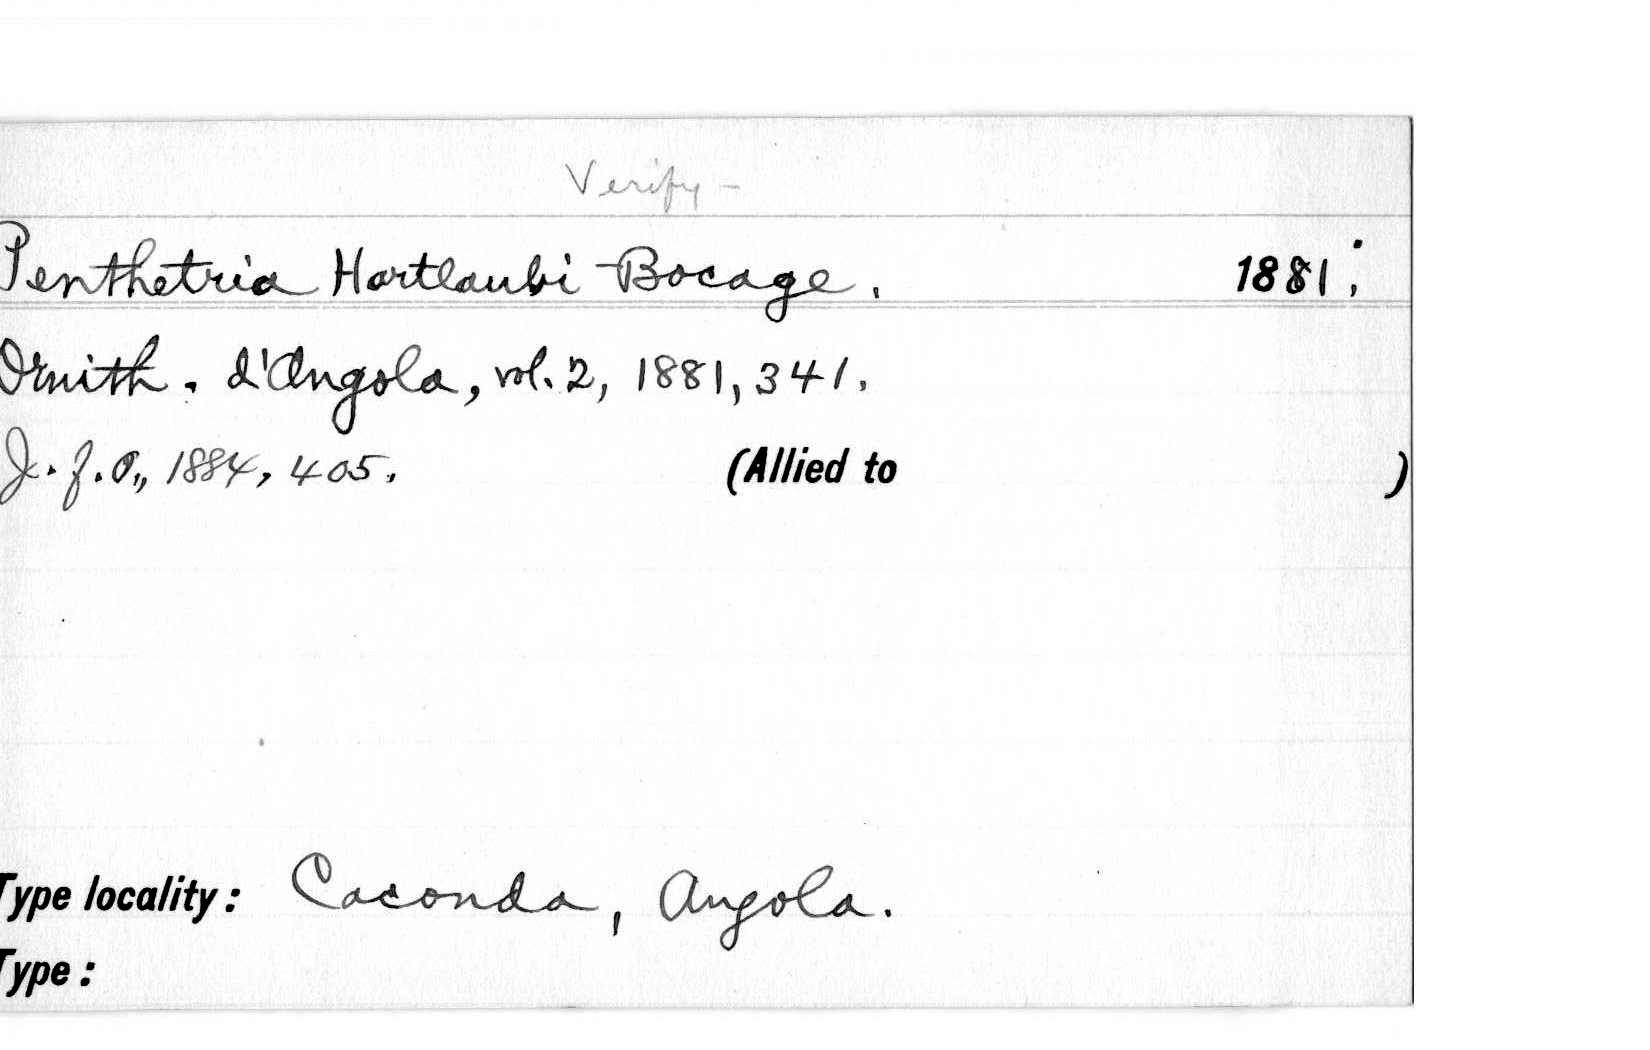 Verify -
Penthetria Hartlaubi Bocage. 1881.
Ornith. d'Angola, vol. 2, 1881, 341.
J. f. O., 1884, 405. (Allied to )
Type locality: Caconda, Angola.
Type: